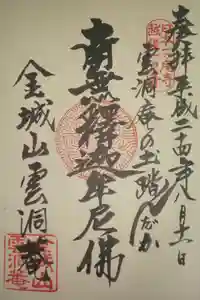 奉拝 平成二十四年八月十一日
雲洞庵の土踏んだか
南無釋迦牟尼佛
金城山雲洞菴